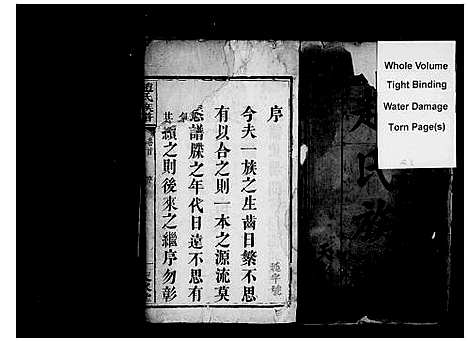 Whole Volume
Tight Binding
Water Damage
Torn Page(s)
氏族
序
今夫一族之生齒日繁不思
有以合之則一本之源流莫
悉譜牒之年代日遠不思有
其續之則後來之繼序勿彰
趙氏族譜
卷首